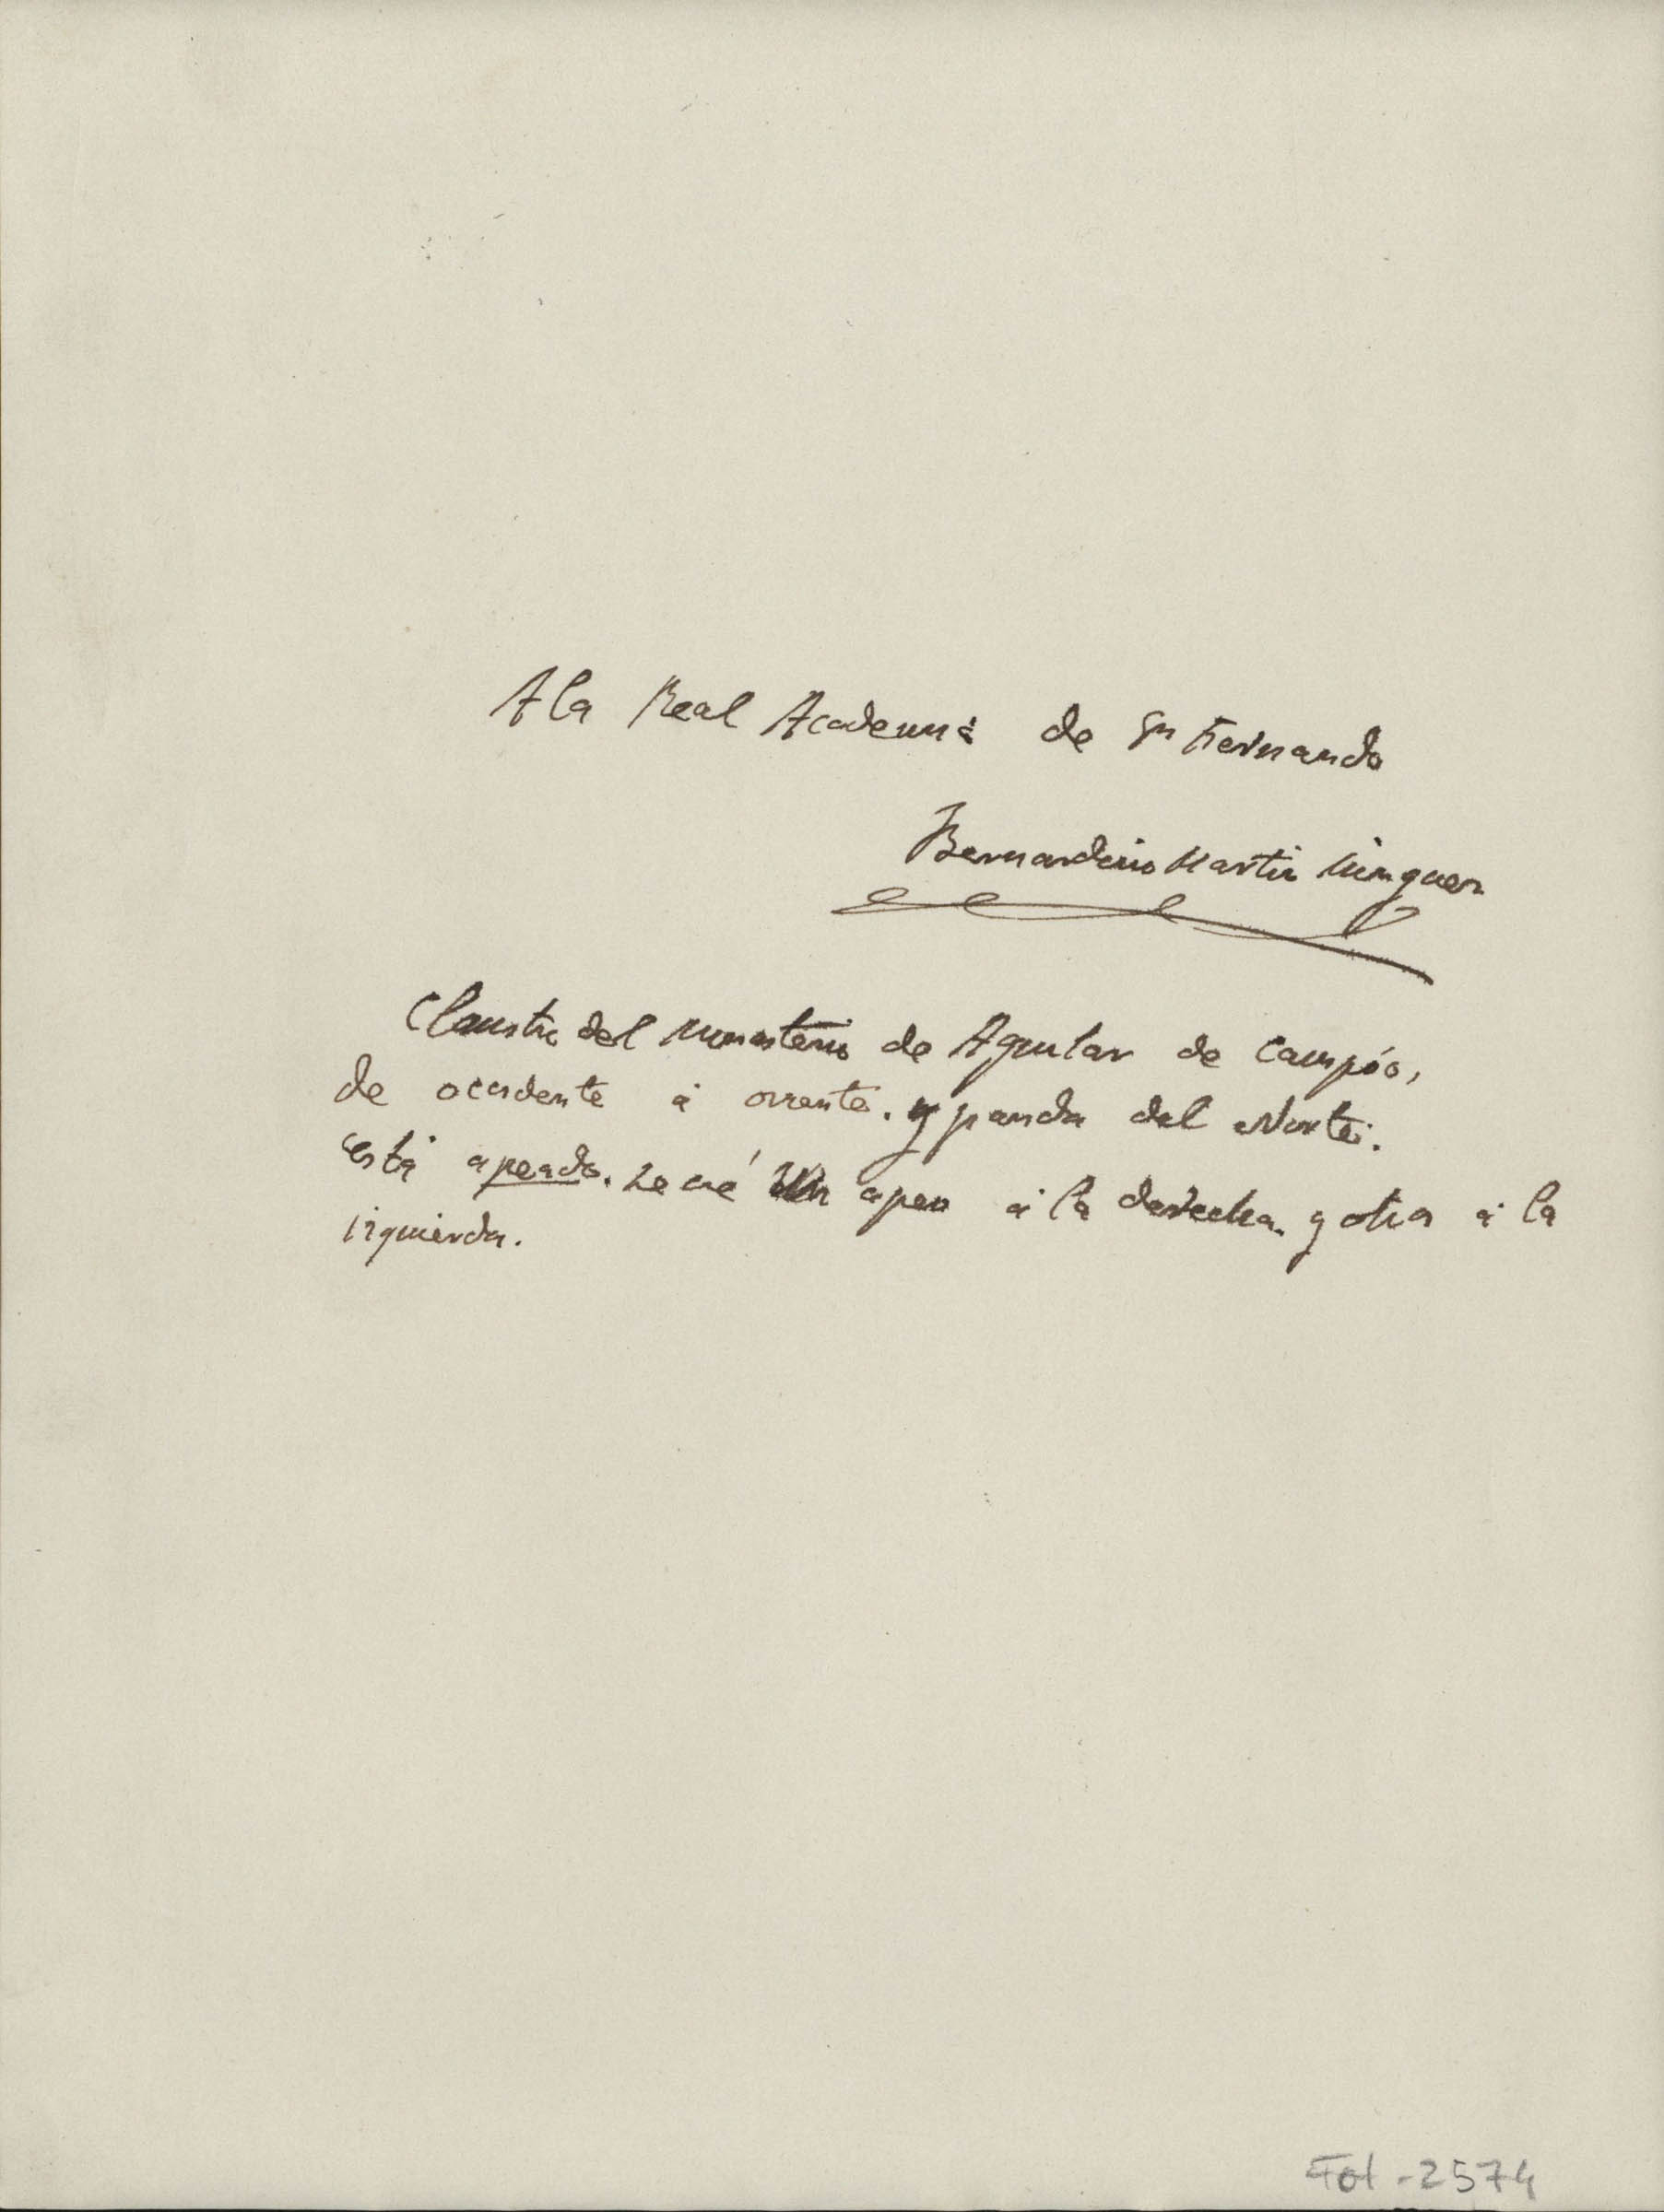 A la Real Academia de Sn Fernando
Bernardino Martin Minguez
Claustro del Monasterio de Aguilar de Campóo,
de occidente á oriente. y panda del Norte.
está apeado. Se vé un apeo á la derecha y otro á la
izquierda.
Fot-2574